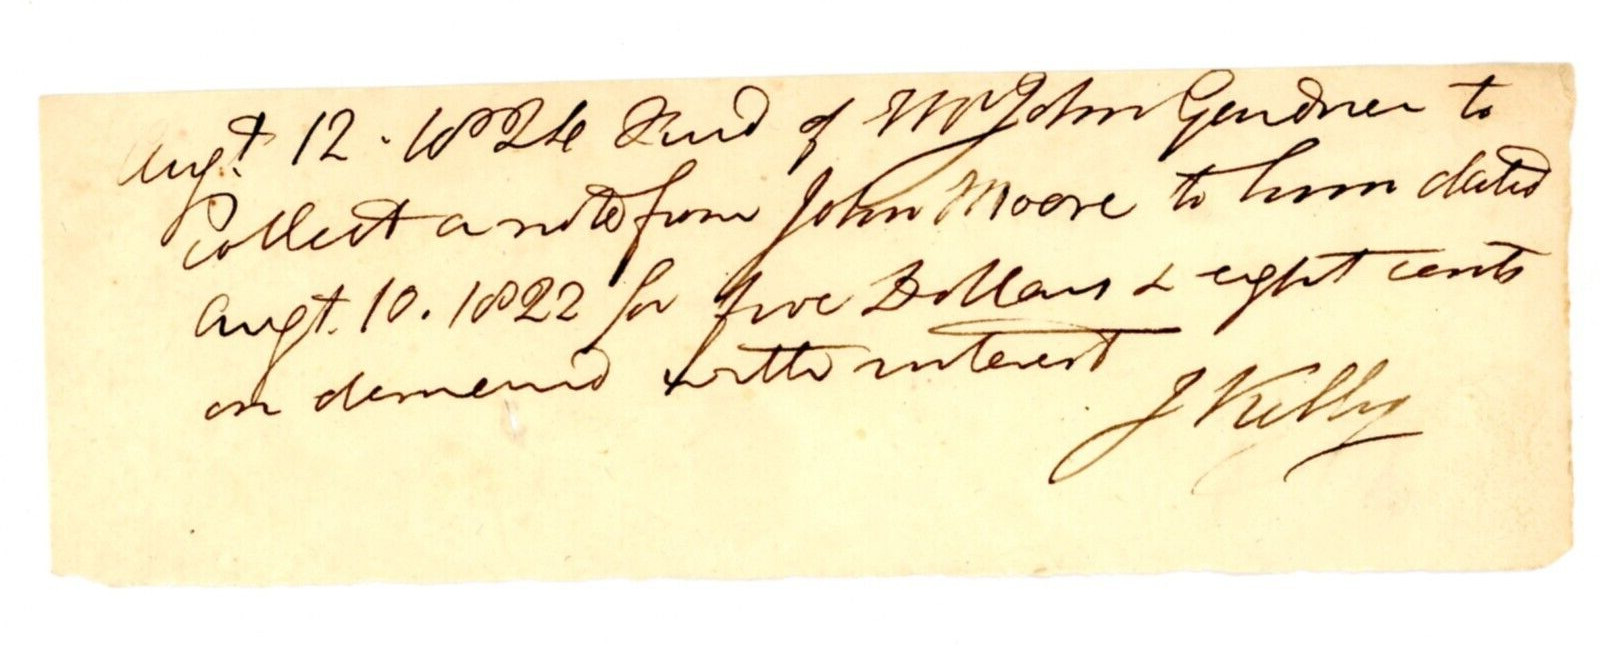 Augt 12. 1824 Recd of Mr John Gardner to
Collect a note from John Moore to him dated
Augt. 10. 1822 for five Dollars & eight cents
on demand with interest
J Kelly